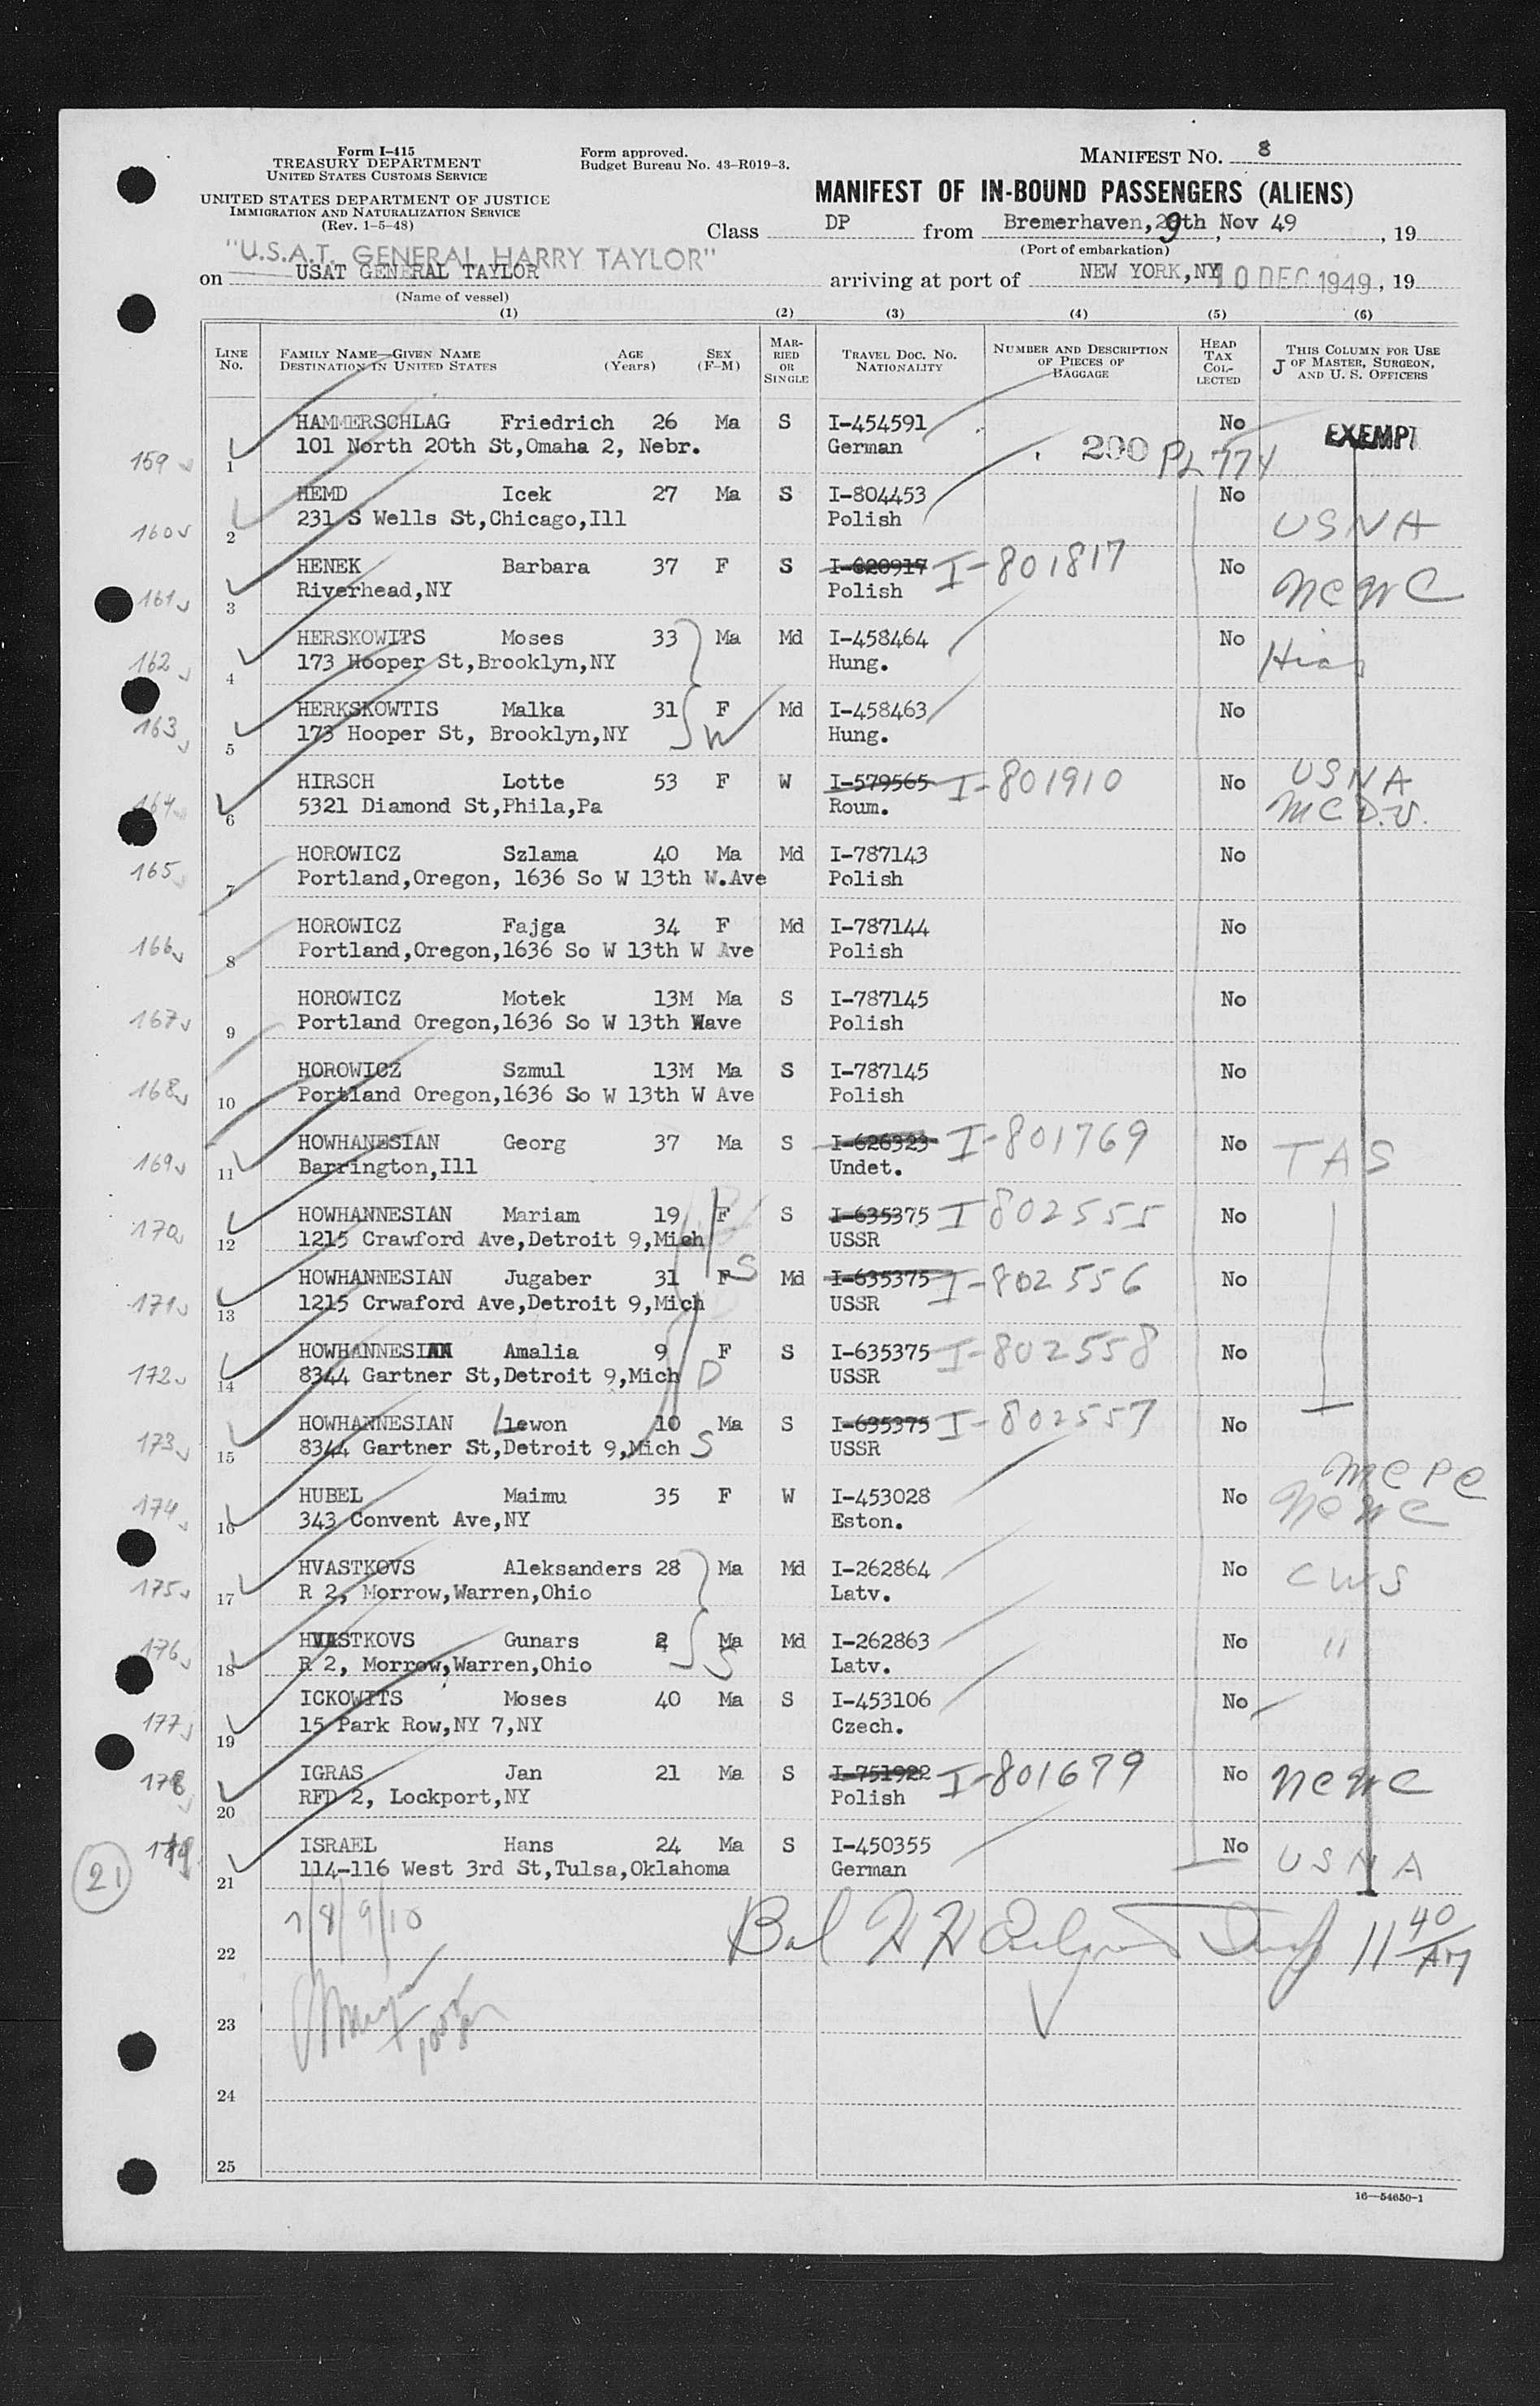 Form I-415
TREASURY DEPARTMENT
UNITED STATES CUSTOMS SERVICE
UNITED STATES DEPARTMENT OF JUSTICE
IMMIGRATION AND NATURALIZATION SERVICE
(Rev. 1-5-48)
Form approved.
Budget Bureau No. 43-R019-3.
MANIFEST No. 8
MANIFEST OF IN-BOUND PASSENGERS (ALIENS)
Class DP from Bremerhaven, 29th Nov 49, 19
(Port of embarkation)
"U.S.A.T. GENERAL HARRY TAYLOR"
on USAT GENERAL TAYLOR arriving at port of NEW YORK,NY 10 DEC 1949, 19
(Name of vessel)
(1) (2) (3) (4) (5) (6)
LINE No. FAMILY NAME—GIVEN NAME DESTINATION IN UNITED STATES AGE (Years) SEX (F-M) MARRIED OR SINGLE TRAVEL DOC. NO. NATIONALITY NUMBER AND DESCRIPTION OF PIECES OF BAGGAGE HEAD TAX COLLECTED J THIS COLUMN FOR USE OF MASTER, SURGEON, AND U. S. OFFICERS
HAMMERSCHLAG Friedrich 26 Ma S I-454591 No EXEMPT
159 1 101 North 20th St,Omaha 2, Nebr. German 200 PL 774
HEMD Icek 27 Ma S I-804453 No
160 2 231 S Wells St,Chicago,Ill Polish USNA
HENEK Barbara 37 F S I-620917 I-801817 No
161 3 Riverhead,NY Polish NCWC
HERSKOWITS Moses 33 Ma Md I-458464 No
162 4 173 Hooper St,Brooklyn,NY Hung. Hias
HERKSKOWTIS Malka 31 F Md I-458463 No
163 5 173 Hooper St, Brooklyn,NY W Hung.
HIRSCH Lotte 53 F W I-579565 I-801910 No USNA
164 6 5321 Diamond St,Phila,Pa Roum. MCD.V.
HOROWICZ Szlama 40 Ma Md I-787143 No
165 7 Portland,Oregon, 1636 So W 13th W.Ave Polish
HOROWICZ Fajga 34 F Md I-787144 No
166 8 Portland,Oregon,1636 So W 13th W Ave Polish
HOROWICZ Motek 13M Ma S I-787145 No
167 9 Portland Oregon,1636 So W 13th Wave Polish
HOROWICZ Szmul 13M Ma S I-787145 No
168 10 Portland Oregon,1636 So W 13th W Ave Polish
HOWHANESIAN Georg 37 Ma S I-626323 I-801769 No TAS
169 11 Barrington,Ill Undet.
HOWHANNESIAN Mariam 19 F S I-635375 I 802555 No
170 12 1215 Crawford Ave,Detroit 9,Mich USSR
S
HOWHANNESIAN Jugaber 31 F Md I-635375 I-802556 No
171 13 1215 Crwaford Ave,Detroit 9,Mich USSR
HOWHANNESIAN Amalia 9 F S I-635375 I-802558 No
172 14 8344 Gartner St,Detroit 9,Mich D USSR
HOWHANNESIAN Llewon 10 Ma S I-635375 I-802557 No
173 15 8344 Gartner St,Detroit 9,Mich S USSR
MCPC
HUBEL Maimu 35 F W I-453028 No NCWC
174 16 343 Convent Ave,NY Eston.
HVASTKOVS Aleksanders 28 Ma Md I-262864 No CWS
175 17 R 2, Morrow,Warren,Ohio Latv.
HVASTKOVS Gunars 2 Ma Md I-262863 No "
176 18 R 2, Morrow,Warren,Ohio S Latv.
ICKOWITS Moses 40 Ma S I-453106 No
177 19 15 Park Row,NY 7,NY Czech.
IGRAS Jan 21 Ma S I-751922 I-801679 No NCWC
178 20 RFD 2, Lockport,NY Polish
ISRAEL Hans 24 Ma S I-450355 No USNA
179 21 114-116 West 3rd St,Tulsa,Oklahoma German
21
7/8/9/10
22 Bal 11 40 AM
23
24
25
16—54650-1